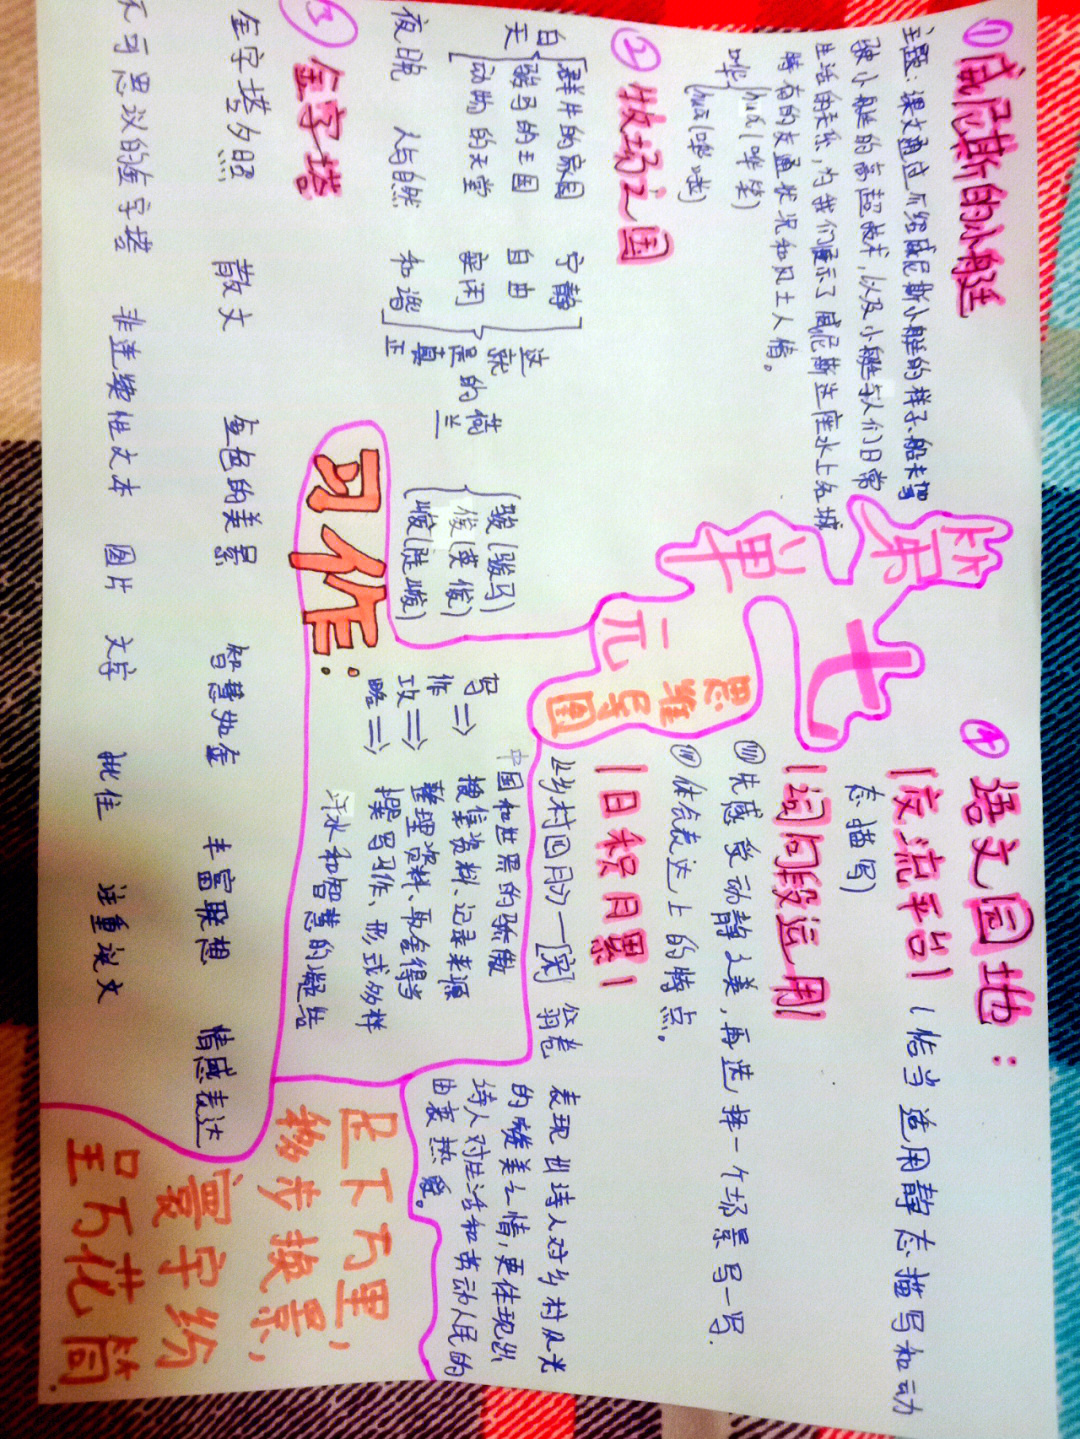 第七单元
思维导图
①威尼斯的小艇
主题:课文通过介绍威尼斯小艇的样子、船夫驾
驶小艇的高超技术,以及小艇与人们日常
生活的关系,为我们展示了威尼斯这座水上名城
特有的交通状况和风土人情。
哗(huá(哗笑)
huā(哗啦)
②牧场之国
白天
群牛的家园 宁静
骏马的王国 自由
动物的天堂 安闲
夜晚 人与自然 和谐
这就是真正的荷兰
骏(骏马)
俊(英俊)
峻(陡峻)
③金字塔
金字塔夕照 散文 金色的美景 智慧如金 丰富联想 情感表达
不可思议的金字塔 非连续性文本 图片 文字 批住 注重说文
习作:
中国和世界的骄傲
写作攻略⇒
搜集资料、记录来源
整理资料、取舍得当
撰写习作、形式多样
汗水和智慧的凝结
④语文园地:
交流平台 (恰当适用静态描写和动
态描写)
词句段运用
先感受动静之美,再选择一个场景写一写.
体会表达上的特点。
日积月累
《乡村四月》—[宋] 翁卷
表现出诗人对乡村风光
的赞美之情,更体现出
诗人对生活和劳动人民的
由衷热爱。
足下万里,
移步换景,
寰宇纷
呈万花筒.